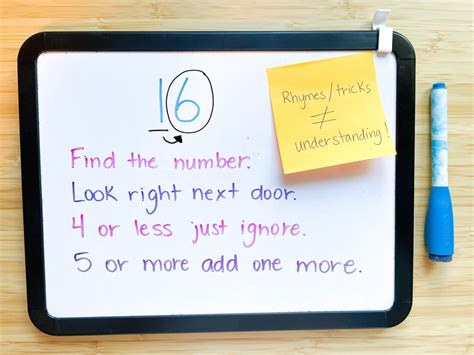 16
Rhymes/tricks
≠
understanding!
Find the number.
Look right next door.
4 or less just ignore.
5 or more add one more.